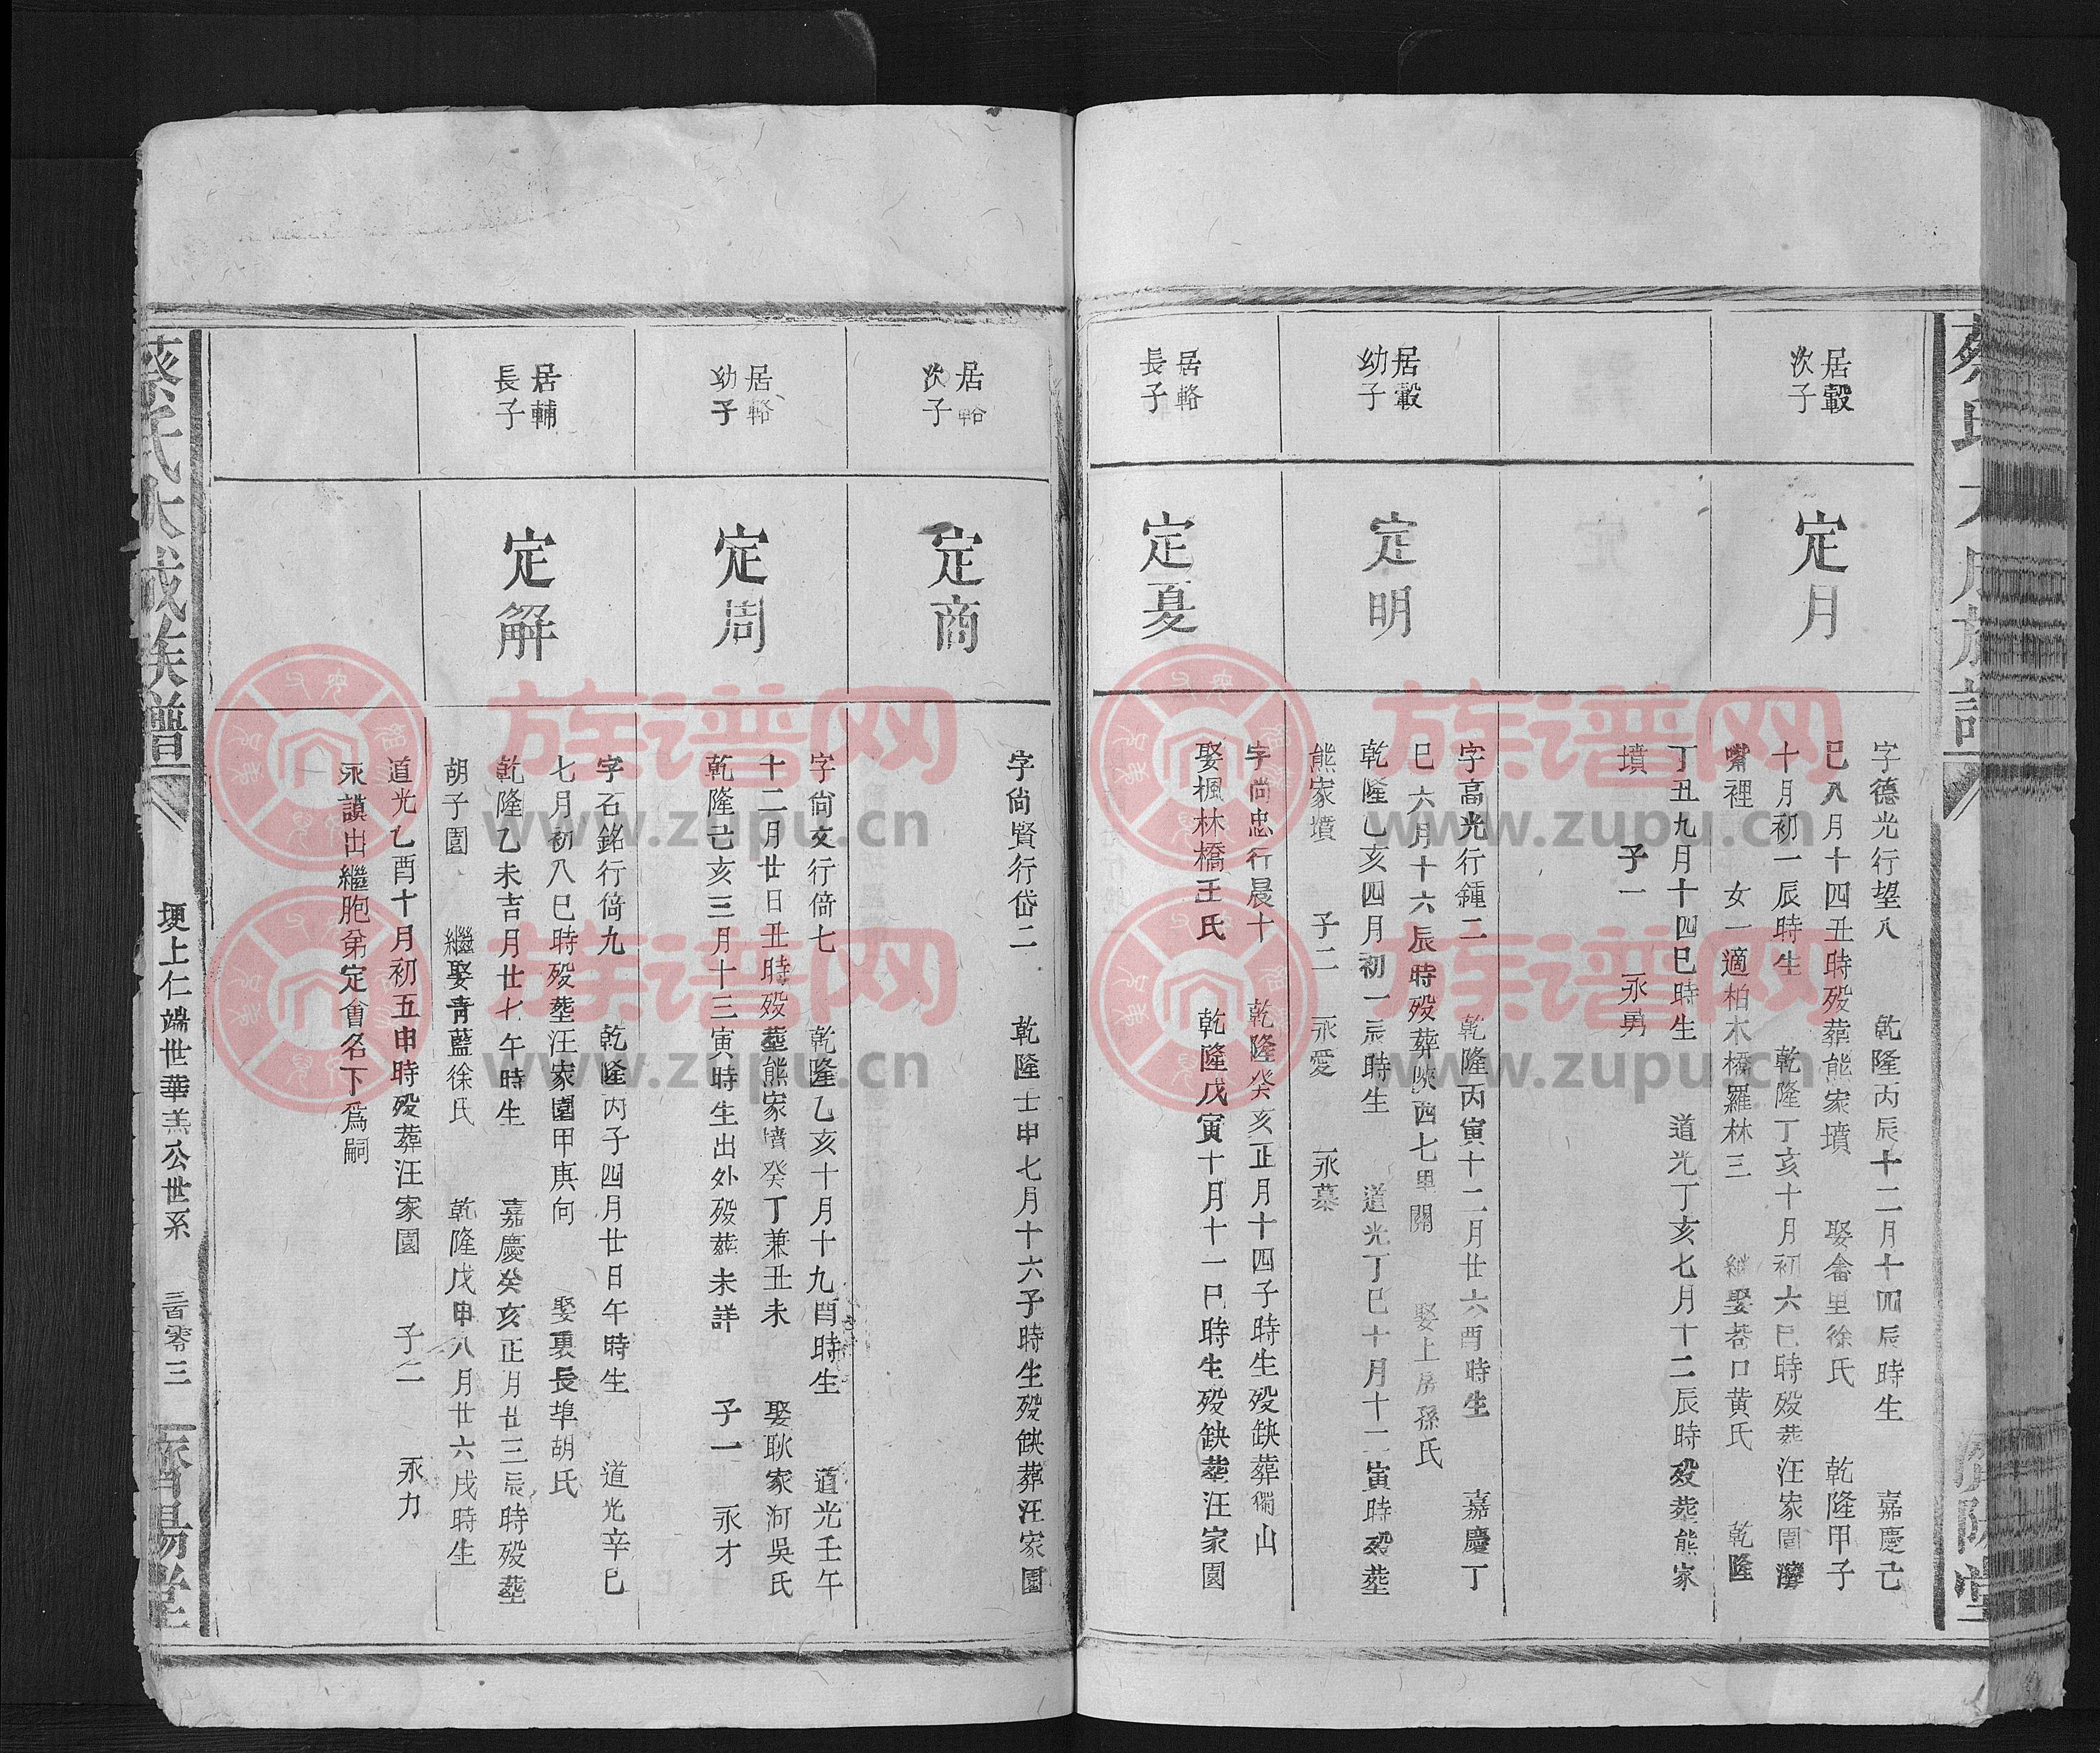 居轂
次子
定月
字德光行望八 乾隆丙辰十二月十四辰時生 嘉慶己
巳八月十四丑時歿葬熊家墳 娶畲里徐氏 乾隆甲子
十月初一辰時生 乾隆丁亥十月初六巳時歿葬汪家園灣
嘴裡 女一適柏木橋羅林三 繼娶巷口黃氏 乾隆
丁丑九月十四巳時生 道光丁亥七月十二辰時歿葬熊家
墳 子一 永勇
居轂
幼子
定明
字高光行鍾二 乾隆丙寅十二月廿六酉時生 嘉慶丁
巳六月十六辰時歿葬陝西七里關 娶上房孫氏
乾隆乙亥四月初一辰時生 道光丁巳十月十二寅時歿葬
熊家墳 子二 永愛 永慕
居輅
長子
定夏
字尚忠行晨十 乾隆癸亥正月十四子時生歿缺葬獨山
娶楓林橋王氏 乾隆戊寅十月十一日時生歿缺葬汪家園
居輅
次子
定商
字尚賢行岱二 乾隆士申七月十六子時生歿缺葬汪家園
居輅
幼子
定周
字尚文行倚七 乾隆乙亥十月十九酉時生 道光壬午
十二月廿日丑時歿葬熊家墳癸丁兼丑未 娶耿家河吳氏
乾隆己亥三月十三寅時生出外歿葬未詳 子一 永才
居輔
長子
定解
字石銘行倚九 乾隆丙子四月廿日午時生 道光辛巳
七月初八巳時歿葬汪家園甲庚向 娶裏長埠胡氏
乾隆乙未吉月廿七午時生 嘉慶癸亥正月廿三辰時歿葬
胡子園 繼娶青藍徐氏 乾隆戊申八月廿六戌時生
道光乙酉十月初五申時歿葬汪家園 子二 永力
永謨出繼胞弟定會名下爲嗣
蔡氏大成族譜
埂上仁端世華羔公世系
三百零三
濟陽堂
族谱网
www.zupu.cn
族谱网
www.zupu.cn
族谱网
www.zupu.cn
族谱网
www.zupu.cn